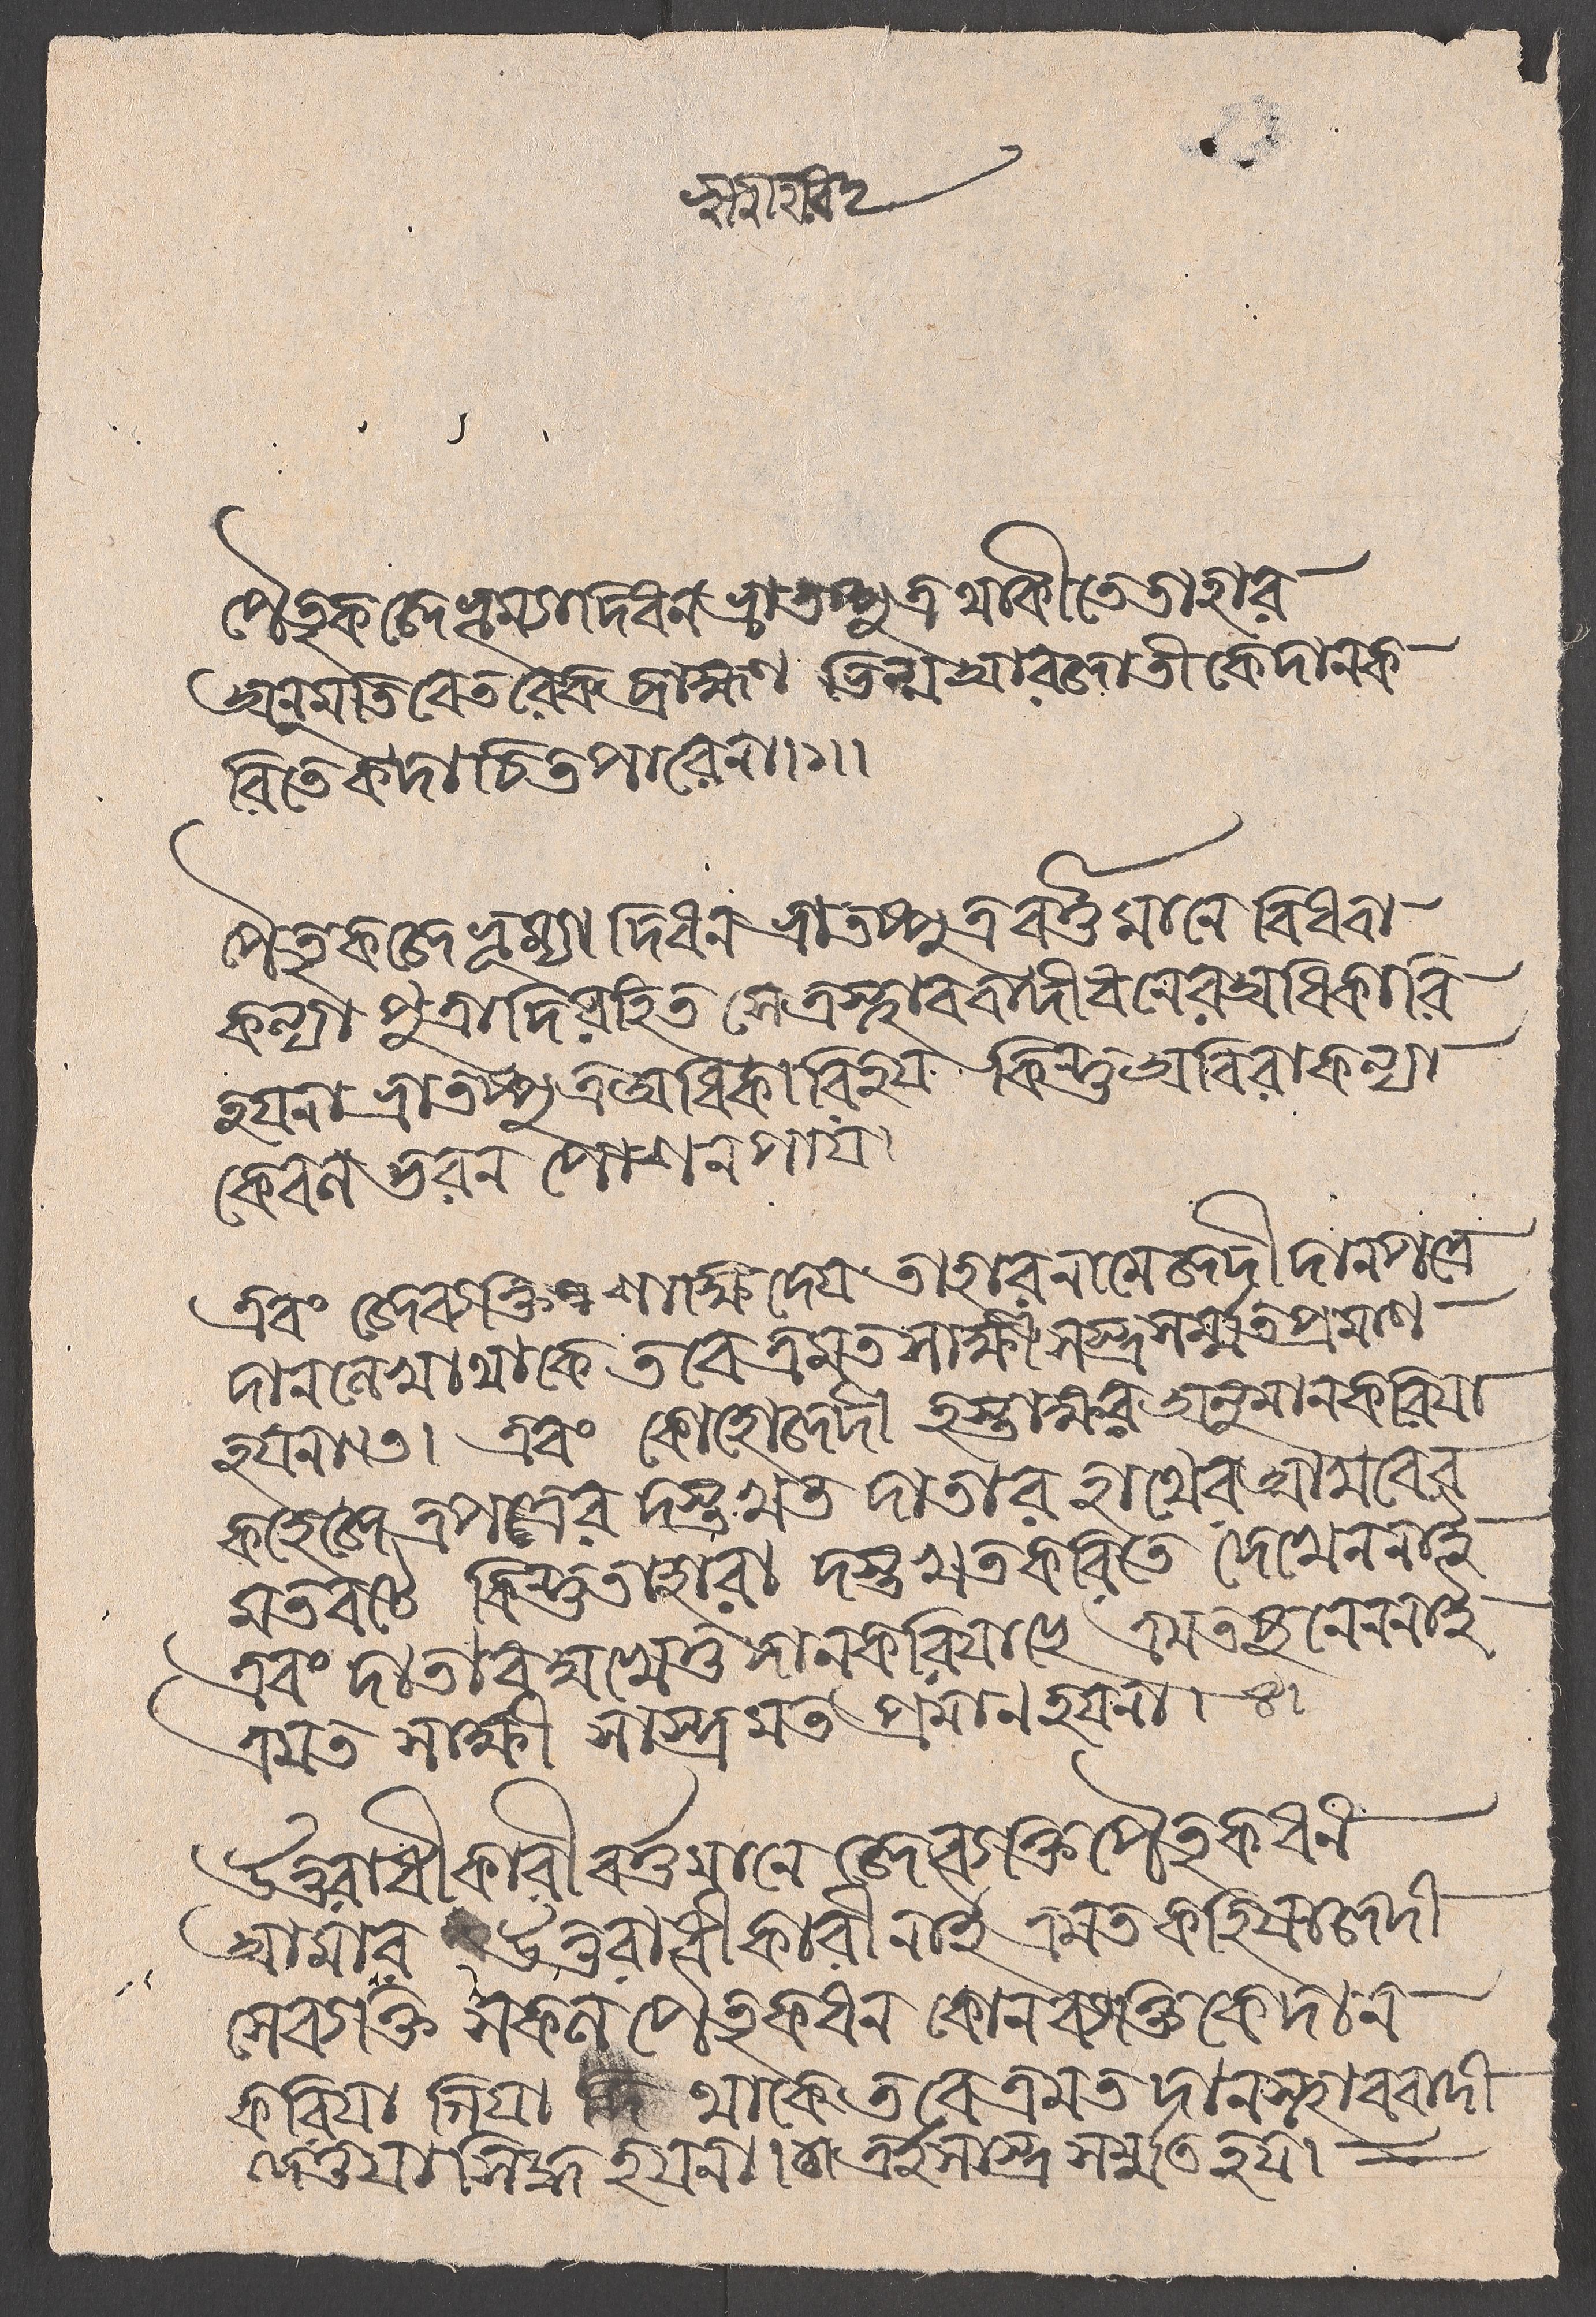 শ্রীশ্রীহরিঃ
পৈতৃক জে ভূম্যাদি ধন ভ্রাতষ্পুত্র থাকীতে তাহার
অনুমতি বেতরেক ব্রাহ্মণ ভিন্ন আর জাতীকে দান ক
রিতে কদাচিত পারে না।১॥
পৈতৃক জে ভূম্যাদি ধন ভ্রাতষ্পুত্র বর্ত্তমানে বিধবা
কন্যা পুত্রাদি রহিত সে এ স্হাবরাদী ধনের অধিকারি
হয় না ভ্রাতষ্পুত্র অধিকারি হয় কিন্তু অবিরা কন্যা
কেবল ভরন পোশন পায়।
এবং জে ব্যক্তি শাক্ষি দেয় তাহার নামে জদী দানপত্রে
দান লেখা থাকে তবে এমত সাক্ষী সাস্ত্র সর্ম্মত প্রমাণ
হয় না।৩। এবং কোহো জদী হস্তাক্ষর অনুমান করিয়া
কহে জে এ পত্রের দস্তখত দাতার হাথের আখরের
মত বটে কিন্তু তাহারা দস্তখত করিতে দেখেন নাই
এবং দাতার মুখেও দান করিয়াছে এমত শুনেন নাই
এমত সাক্ষী সাস্ত্র মত প্রমান হয় না। ৪।
উত্তরাধীকারী বর্ত্তমানে জে ব্যক্তি পৈতৃক ধন
আমার উত্তরাধীকারী নাই এমত কহিয়া জদী
সে ব্যক্তি সকল পৈতৃক ধন কোন ব্যক্তিকে দান
করিয়া গিয়া থাকে তবে এমত দান স্হাবরাদী
দেওয়া সিদ্ধ হয় না।৫। এই সাস্ত্র সর্ম্মত হয়।